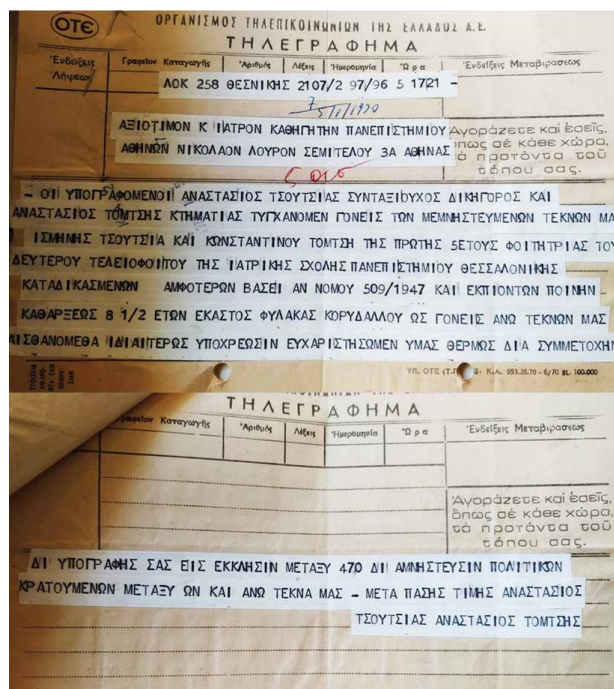 ΟΤΕ
ΟΡΓΑΝΙΣΜΟΣ ΤΗΛΕΠΙΚΟΙΝΩΝΙΩΝ ΤΗΣ ΕΛΛΑΔΟΣ Α.Ε.
ΤΗΛΕΓΡΑΦΗΜΑ
Ἐνδείξεις Λήψεως
Γραφεῖον Καταγωγῆς Ἀριθμός Λέξεις Ἡμερομηνία Ὥρα
Ἐνδείξεις Μεταβιβάσεως
ΛΟΚ 258 ΘΕΣΝΙΚΗΣ 2107/2 97/96 5 1721 -
ΑΞΙΟΤΙΜΟΝ Κ ΙΑΤΡΟΝ ΚΑΘΗΓΗΤΗΝ ΠΑΝΕΠΙΣΤΗΜΙΟΥ
ΑΘΗΝΩΝ ΝΙΚΟΛΑΟΝ ΛΟΥΡΟΝ ΣΕΜΙΤΕΛΟΥ 3Α ΑΘΗΝΑΣ
Ἀγοράζετε καί ἐσεῖς,
ὅπως σέ κάθε χώρα,
τά προτόντα τοῦ
τόπου σας.
- ΟΙ ΥΠΟΓΡΑΦΟΜΕΝΟΙ ΑΝΑΣΤΑΣΙΟΣ ΤΣΟΥΤΣΙΑΣ ΣΥΝΤΑΞΙΟΥΧΟΣ ΔΙΚΗΓΟΡΟΣ ΚΑΙ
ΑΝΑΣΤΑΣΙΟΣ ΤΟΜΤΣΗΣ ΚΤΗΜΑΤΙΑΣ ΤΥΓΧΑΝΟΜΕΝ ΓΟΝΕΙΣ ΤΩΝ ΜΕΜΝΗΣΤΕΥΜΕΝΩΝ ΤΕΚΝΩΝ ΜΑ
ΙΣΜΗΝΗΣ ΤΣΟΥΤΣΙΑ ΚΑΙ ΚΩΝΣΤΑΝΤΙΝΟΥ ΤΟΜΤΣΗ ΤΗΣ ΠΡΩΤΗΣ 5ΕΤΟΥΣ ΦΟΙΤΗΤΡΙΑΣ ΤΟΥ
ΔΕΥΤΕΡΟΥ ΤΕΛΕΙΟΦΟΙΤΟΥ ΤΗΣ ΙΑΤΡΙΚΗΣ ΣΧΟΛΗΣ ΠΑΝΕΠΙΣΤΗΜΙΟΥ ΘΕΣΣΑΛΟΝΙΚΗΣ
ΚΑΤΑΔΙΚΑΣΜΕΝΩΝ ΑΜΦΟΤΕΡΩΝ ΒΑΣΕΙ ΑΝ ΝΟΜΟΥ 509/1947 ΚΑΙ ΕΚΠΙΟΝΤΩΝ ΠΟΙΝΗΝ -
ΚΑΘΑΡΞΕΩΣ 8 1/2 ΕΤΩΝ ΕΚΑΣΤΟΣ ΦΥΛΑΚΑΣ ΚΟΡΥΔΑΛΛΟΥ ΩΣ ΓΟΝΕΙΣ ΑΝΩ ΤΕΚΝΩΝ ΜΑΣ
ΑΙΣΘΑΝΟΜΕΘΑ ΙΔΙΑΙΤΕΡΩΣ ΥΠΟΧΡΕΩΣΙΝ ΕΥΧΑΡΙΣΤΗΣΩΜΕΝ ΥΜΑΣ ΘΕΡΜΩΣ ΔΙΑ ΣΥΜΜΕΤΟΧΗΝ
ΥΠ. ΟΤΕ Κ.Α. 953.28.70 - 6/70 BL. 100.000
ΤΗΛΕΓΡΑΦΗΜΑ
Γραφεῖον Καταγωγῆς Ἀριθμός Λέξεις Ἡμερομηνία Ὥρα
Ἐνδείξεις Μεταβιβάσεως
Ἀγοράζετε καί ἐσεῖς,
ὅπως σέ κάθε χώρα,
τά προτόντα τοῦ
τόπου σας.
ΔΙ ΥΠΟΓΡΑΦΗΣ ΣΑΣ ΕΙΣ ΕΚΚΛΗΣΙΝ ΜΕΤΑΞΥ 470 ΔΙ ΑΜΝΗΣΤΕΥΣΙΝ ΠΟΛΙΤΙΚΩΝ
ΚΡΑΤΟΥΜΕΝΩΝ ΜΕΤΑΞΥ ΩΝ ΚΑΙ ΑΝΩ ΤΕΚΝΑ ΜΑΣ - ΜΕΤΑ ΠΑΣΗΣ ΤΙΜΗΣ ΑΝΑΣΤΑΣΙΟΣ
ΤΣΟΥΤΣΙΑΣ ΑΝΑΣΤΑΣΙΟΣ ΤΟΜΤΣΗΣ